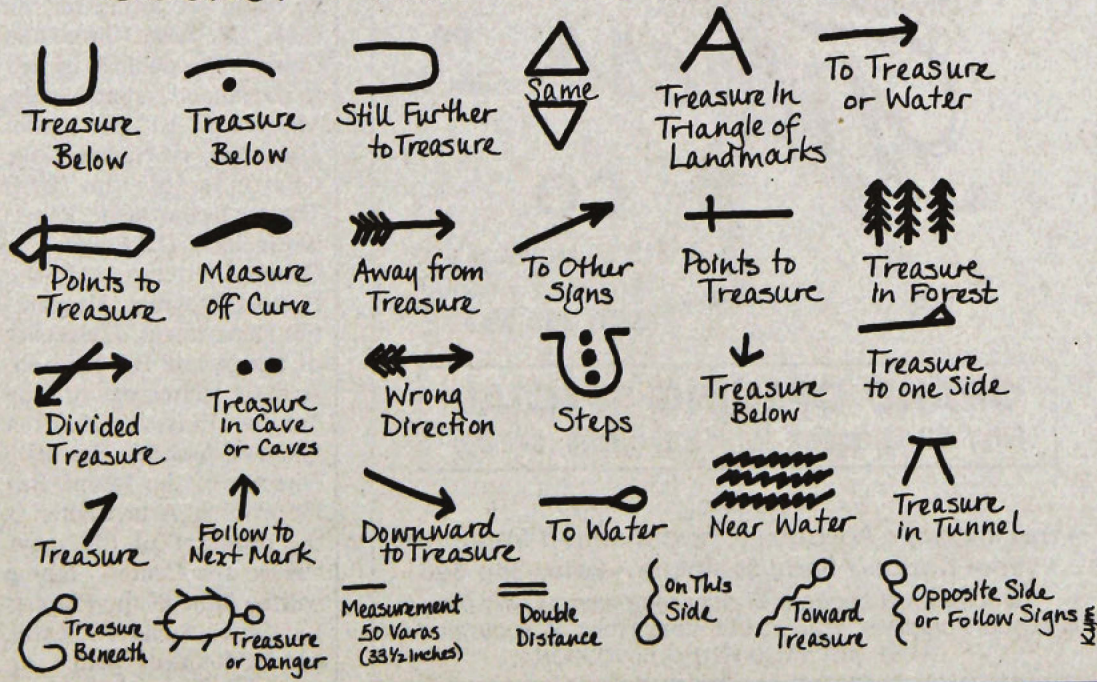 Treasure
Below
Treasure
Below
Still Further
to Treasure
Same
Treasure In
Triangle of
Landmarks
To Treasure
or Water
Points to
Treasure
Measure
off Curve
Away from
Treasure
To Other
Signs
Points to
Treasure
Treasure
in Forest
Divided
Treasure
Treasure
In Cave
or Caves
Wrong
Direction
Steps
Treasure
Below
Treasure
to one Side
Treasure
Follow to
Next Mark
Downward
to Treasure
To Water
Near Water
Treasure
in Tunnel
Treasure
Beneath
Treasure
or Danger
Measurement
50 Varas
(33½ Inches)
Double
Distance
On This
Side
Toward
Treasure
Opposite Side
or Follow Signs
Kym